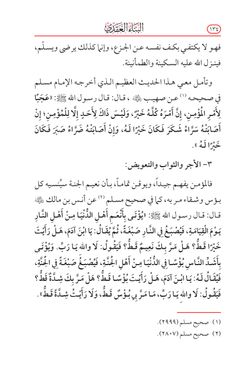 ١٣٤ البناء العقدي
فهو لا يكتفي بكف نفسه عن الجزع، وإنما كذلك يرضى ويسلّم،
فينزل الله عليه السكينة والطمأنينة.
وتأمل معي هذا الحديث العظيم الذي أخرجه الإمام مسلم
في صحيحه (١) عن صهيب ، قال: قال رسول الله ﷺ: «عَجَبًا
لِأَمْرِ المُؤْمِنِ، إِنَّ أَمْرَهُ كُلَّهُ خَيْرٌ، وَلَيْسَ ذَاكَ لِأَحَدٍ إِلَّا لِلْمُؤْمِنِ؛ إِنْ
أَصَابَتْهُ سَرَّاءُ شَكَرَ فَكَانَ خَيْرًا لَهُ، وَإِنْ أَصَابَتْهُ ضَرَّاءُ صَبَرَ فَكَانَ
خَيْرًا لَهُ».
٣- الأجر والثواب والتعويض:
فالمؤمن يفهم جيداً، ويوقن تماماً، بأن نعيم الجنة سيُنسيه كل
بؤس وشقاء مر به، كما في صحيح مسلم (٢) عن أنس بن مالك
قال: قال رسول الله ﷺ: «يُؤْتَى بِأَنْعَمِ أَهْلِ الدُّنْيَا مِنْ أَهْلِ النَّارِ
يَوْمَ القِيَامَةِ، فَيُصْبَغُ فِي النَّارِ صَبْغَةً، ثُمَّ يُقَالُ: يَا ابْنَ آدَمَ، هَلْ رَأَيْتَ
خَيْرًا قَطُّ؟ هَلْ مَرَّ بِكَ نَعِيمٌ قَطُّ؟ فَيَقُولُ: لَا وَاللهِ يَا رَبِّ. وَيُؤْتَى
بِأَشَدِّ النَّاسِ بُؤْسًا فِي الدُّنْيَا مِنْ أَهْلِ الجَنَّةِ، فَيُصْبَغُ صَبْغَةً فِي الجَنَّةِ،
فَيُقَالُ لَهُ: يَا ابْنَ آدَمَ، هَلْ رَأَيْتَ بُؤْسًا قَطُّ؟ هَلْ مَرَّ بِكَ شِدَّةٌ قَطُّ؟
فَيَقُولُ: لَا وَاللهِ يَا رَبِّ، مَا مَرَّ بِي بُؤْسٌ قَطُّ، وَلَا رَأَيْتُ شِدَّةً قَطُّ».
(١) صحيح مسلم (٢٩٩٩)
(٢) صحيح مسلم (٢٨٠٧)